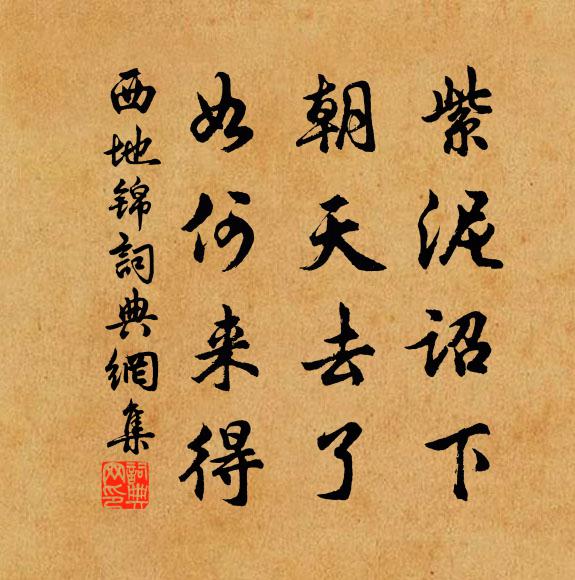 紫泥诏下
朝天去了
如何来得
西地锦詞典網集
詞典
网印